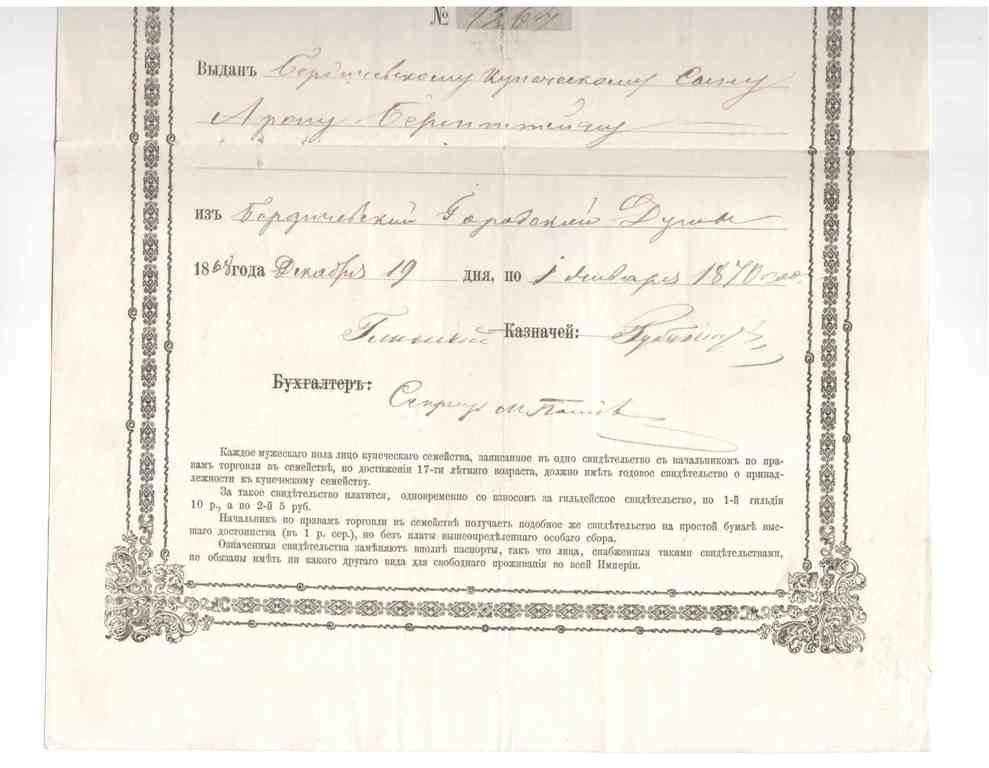 № 1264
Выданъ Бердичевскому Купеческому Сыну
Арону
изъ Бердичевской Городской Думы
1868 года Декабря 19 дня, по 1 Января 1870 года
Казначей:
Бухгалтеръ:
Секретарь
Каждое мужескаго пола лицо купеческаго семейства, записанное въ одно свидѣтельство съ начальникомъ по пра-
вамъ торговли въ семействѣ, по достиженіи 17-ти лѣтняго возраста, должно имѣть годовое свидѣтельство о принад-
лежности къ купеческому семейству.
За такое свидѣтельство платится, одновременно со взносомъ за гильдейское свидѣтельство, по 1-й гильдіи
10 р., а по 2-й 5 руб.
Начальникъ по правамъ торговли въ семействѣ получаетъ подобное же свидѣтельство на простой бумагѣ выс-
шаго достоинства (въ 1 р. сер.), но безъ платы вышеопредѣленнаго особаго сбора.
Означенныя свидѣтельства замѣняютъ вполнѣ паспорты, такъ что лица, снабженныя такими свидѣтельствами,
не обязаны имѣть ни какого другаго вида для свободнаго проживанія во всей Имперіи.